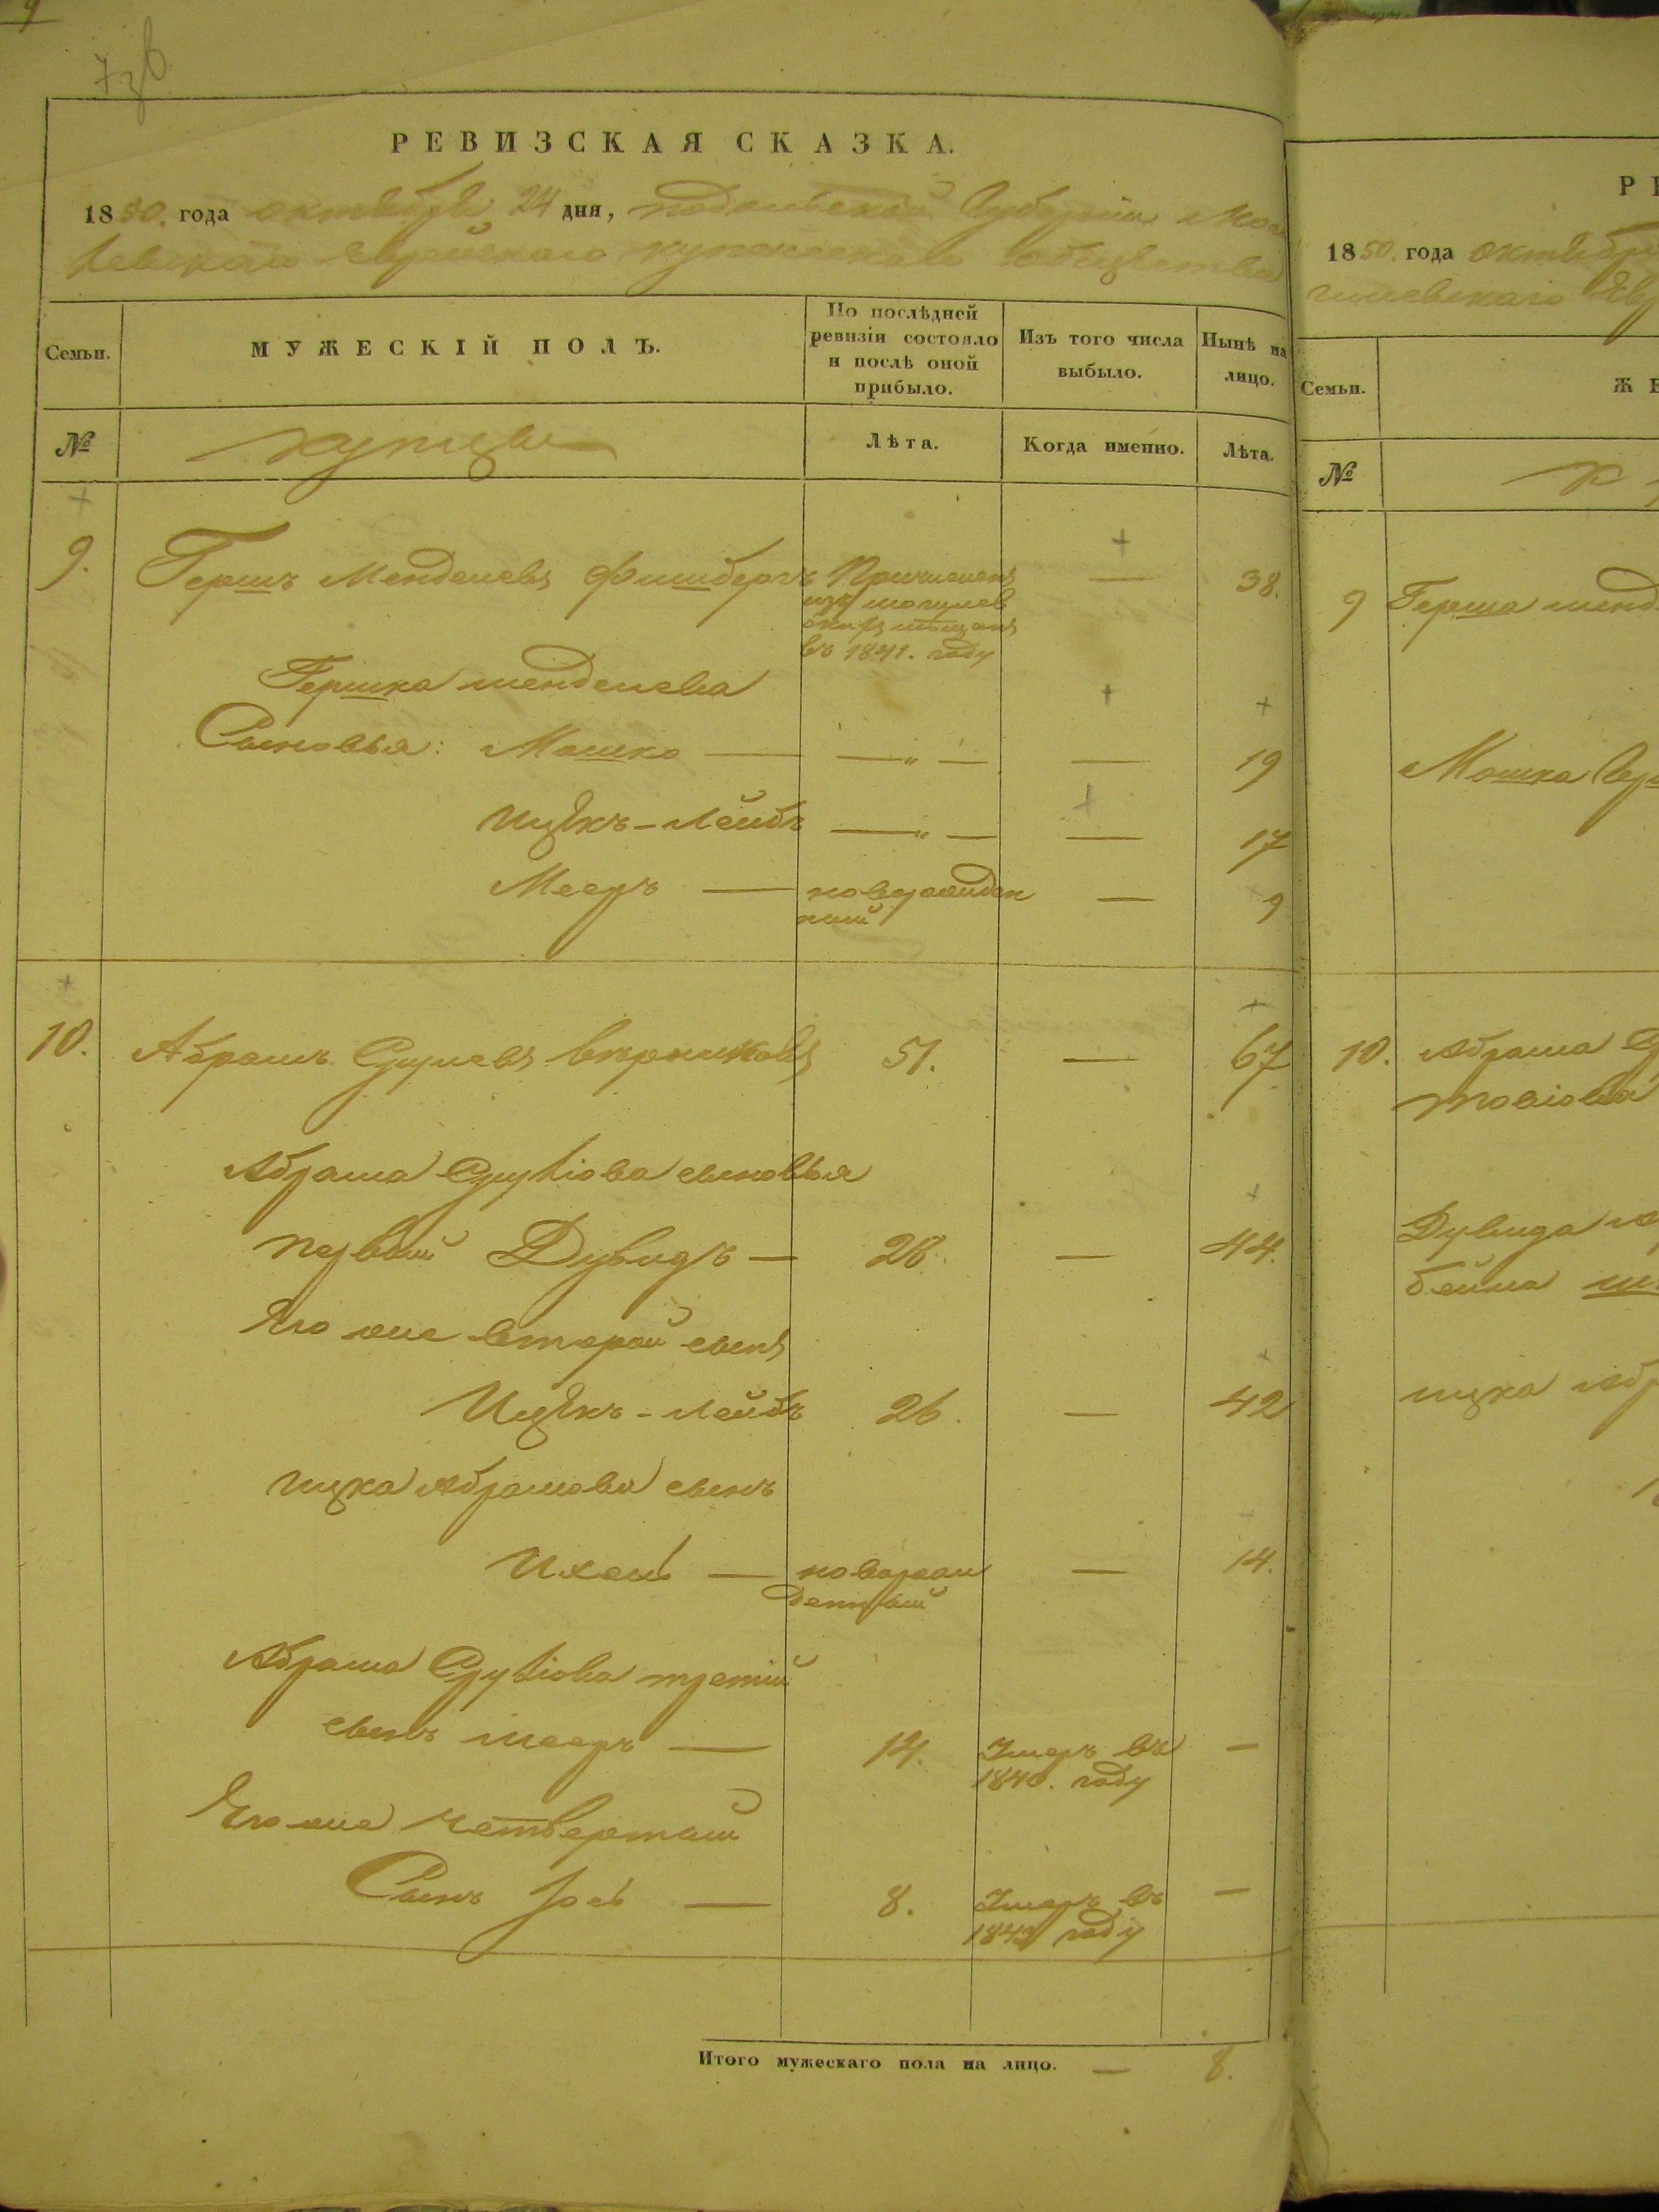 РЕВИЗСКАЯ СКАЗКА.
1850. года октября 24 дня, подольской Губернии Моги
левскаго Еврейскаго купеческаго общества
Семьи.
МУЖЕСКІЙ ПОЛЪ.
По послѣдней ревизіи состояло и послѣ оной прибыло.
Изъ того числа выбыло.
Нынѣ на лицо.
№
купцы
Лѣта.
Когда именно.
Лѣта.
9. Гершъ Менделевъ Фишбергъ Причисленъ — 38.
изъ могилев
скихъ мѣщанъ
въ 1841. году
Гершка менделева
Сыновья: Мошко — —„— — 19
Ицъкъ-Лейбъ —„— — 17
Мееръ — новорожден — 9
ный
10. Абрамъ Сруліовъ 51. — 67
Абрама Сруліова сыновья
первый Дувидъ — 28. — 44.
Его же второй сынъ
Ицъкъ-Лейбъ 26. — 42
ицка Абрамова сынъ
— новорож — 14.
денный
Абрама Сруліова третій
сынъ мееръ — 14. Умеръ въ —
1840. году
Его же четвертый
Сынъ — 8. Умеръ въ —
году
Итого мужескаго пола на лицо. — 8.
РЕ
1850. года октября
гилевскаго Евр
Семьи.
ЖЕ
№
9 Герша менд
Мошка Гер
10. Абрама С
Дувида
ицка Абр